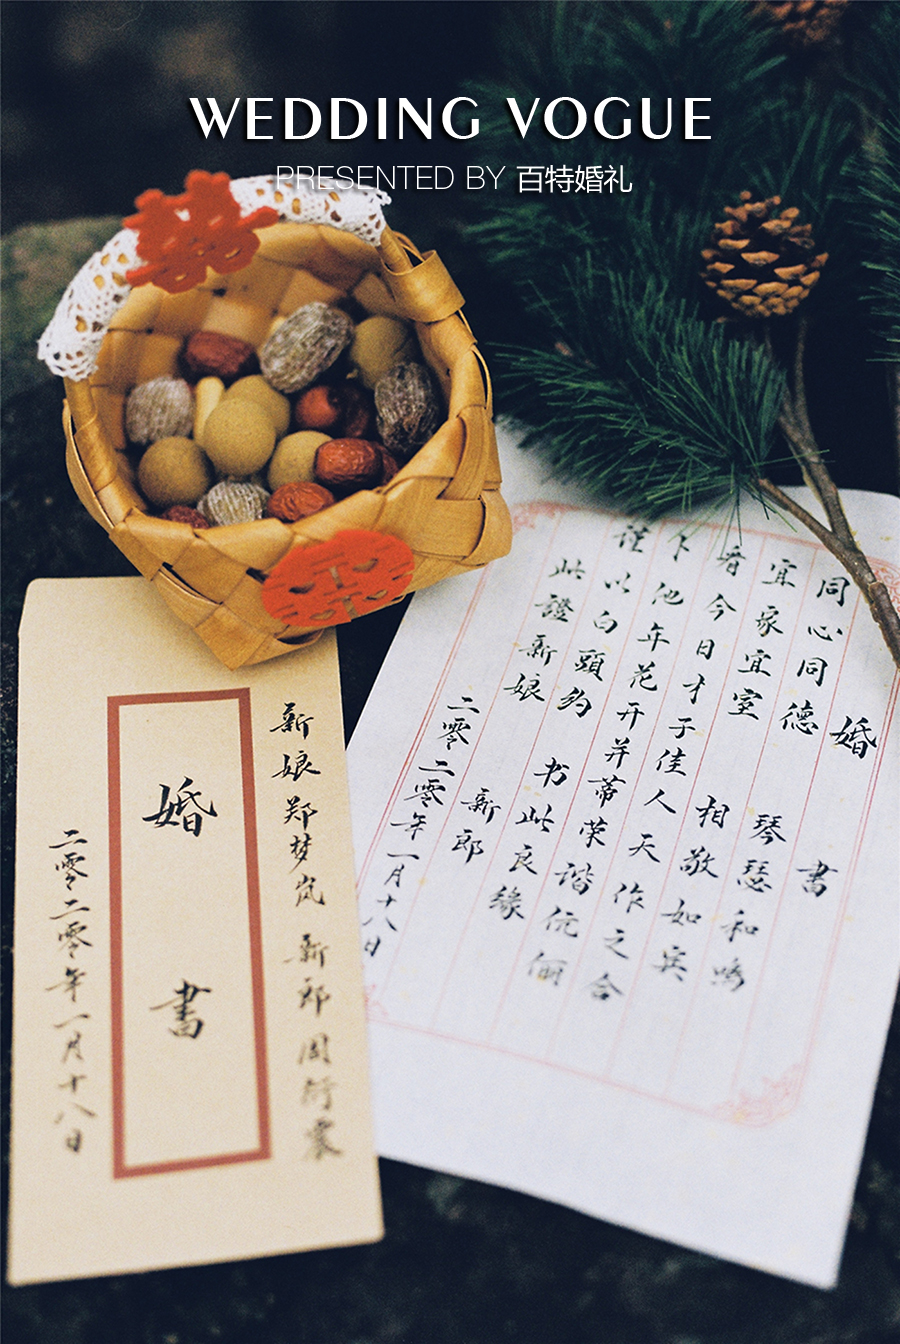 WEDDING VOGUE
PRESENTED BY 百特婚礼
婚書
同心同德 琴瑟和鸣
宜家宜室 相敬如宾
看今日才子佳人天作之合
卜他年花开并蒂荣谐伉俪
谨以白頭约 书此良缘
此證新娘 新郎
二零二零年一月十八日
新娘郑梦岚 新郎周衍震
婚書
二零二零年一月十八日